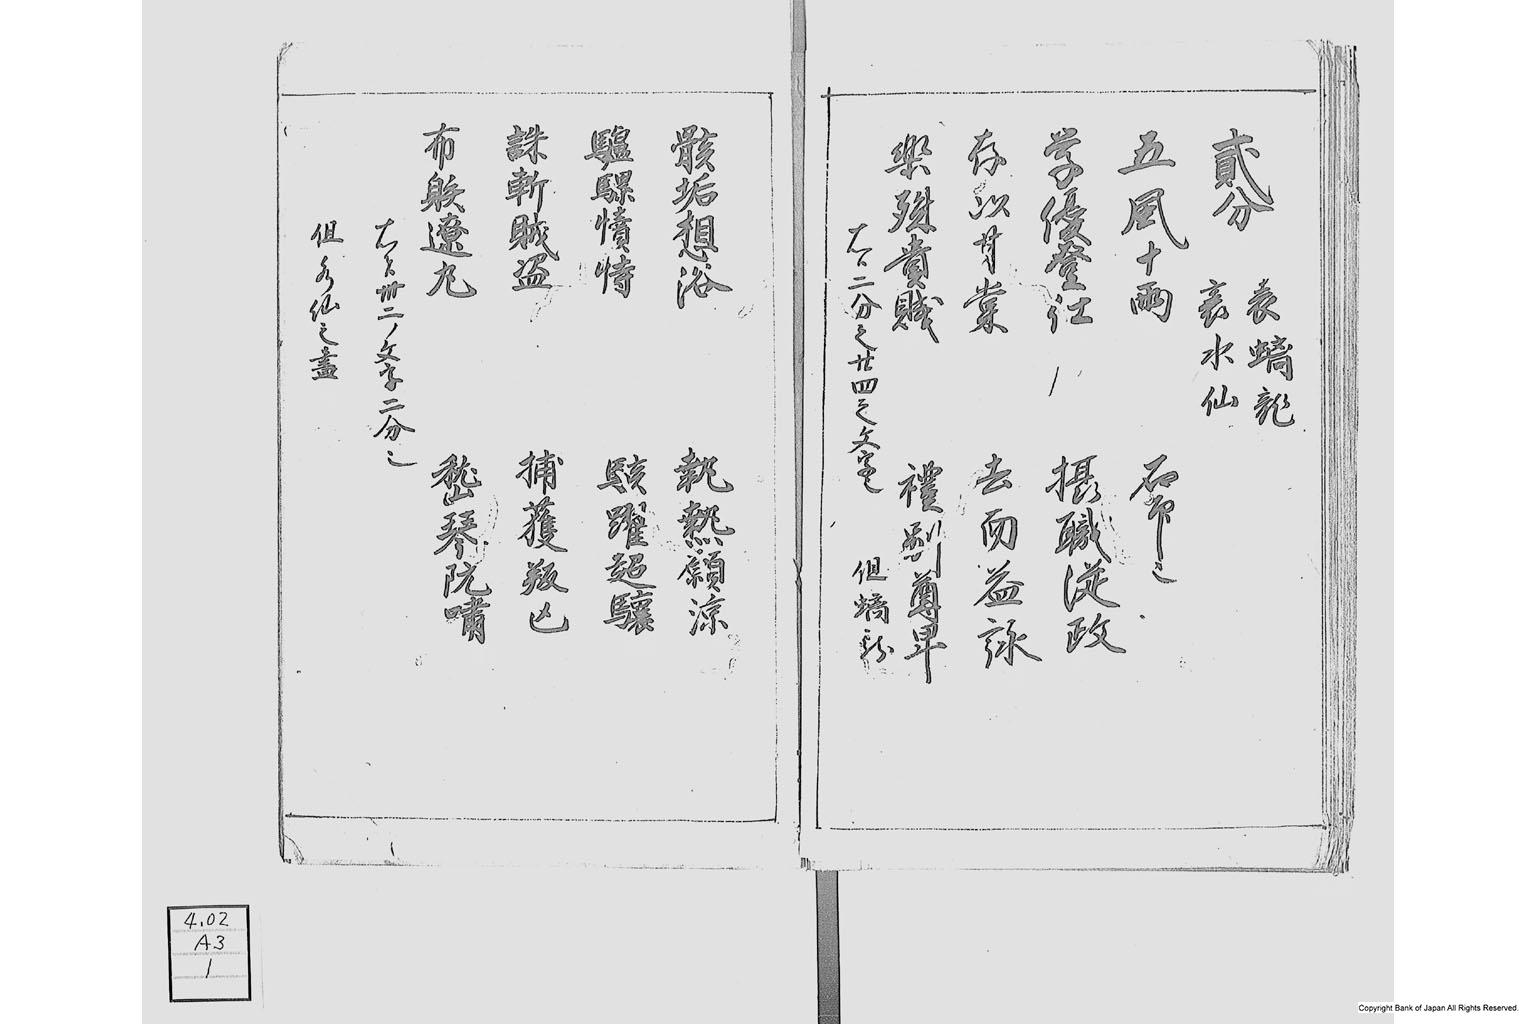 貳分
表螭龍
裏水仙
五風十雨
石印之
学優登仕
摂職従政
存以甘棠
去而益詠
楽殊貴賤
禮別尊卑
右ハ二分之廿四之文字也
但螭龍
骸垢想浴
執熱願涼
驢騾犢特
駭躍超驤
誅斬賊盗
捕獲叛亡
布射遼丸
嵇琴阮嘯
右ハ卅二ノ文字二分之
但水仙之畫
4.02
A3
1
Copyright Bank of Japan All Rights Reserved.